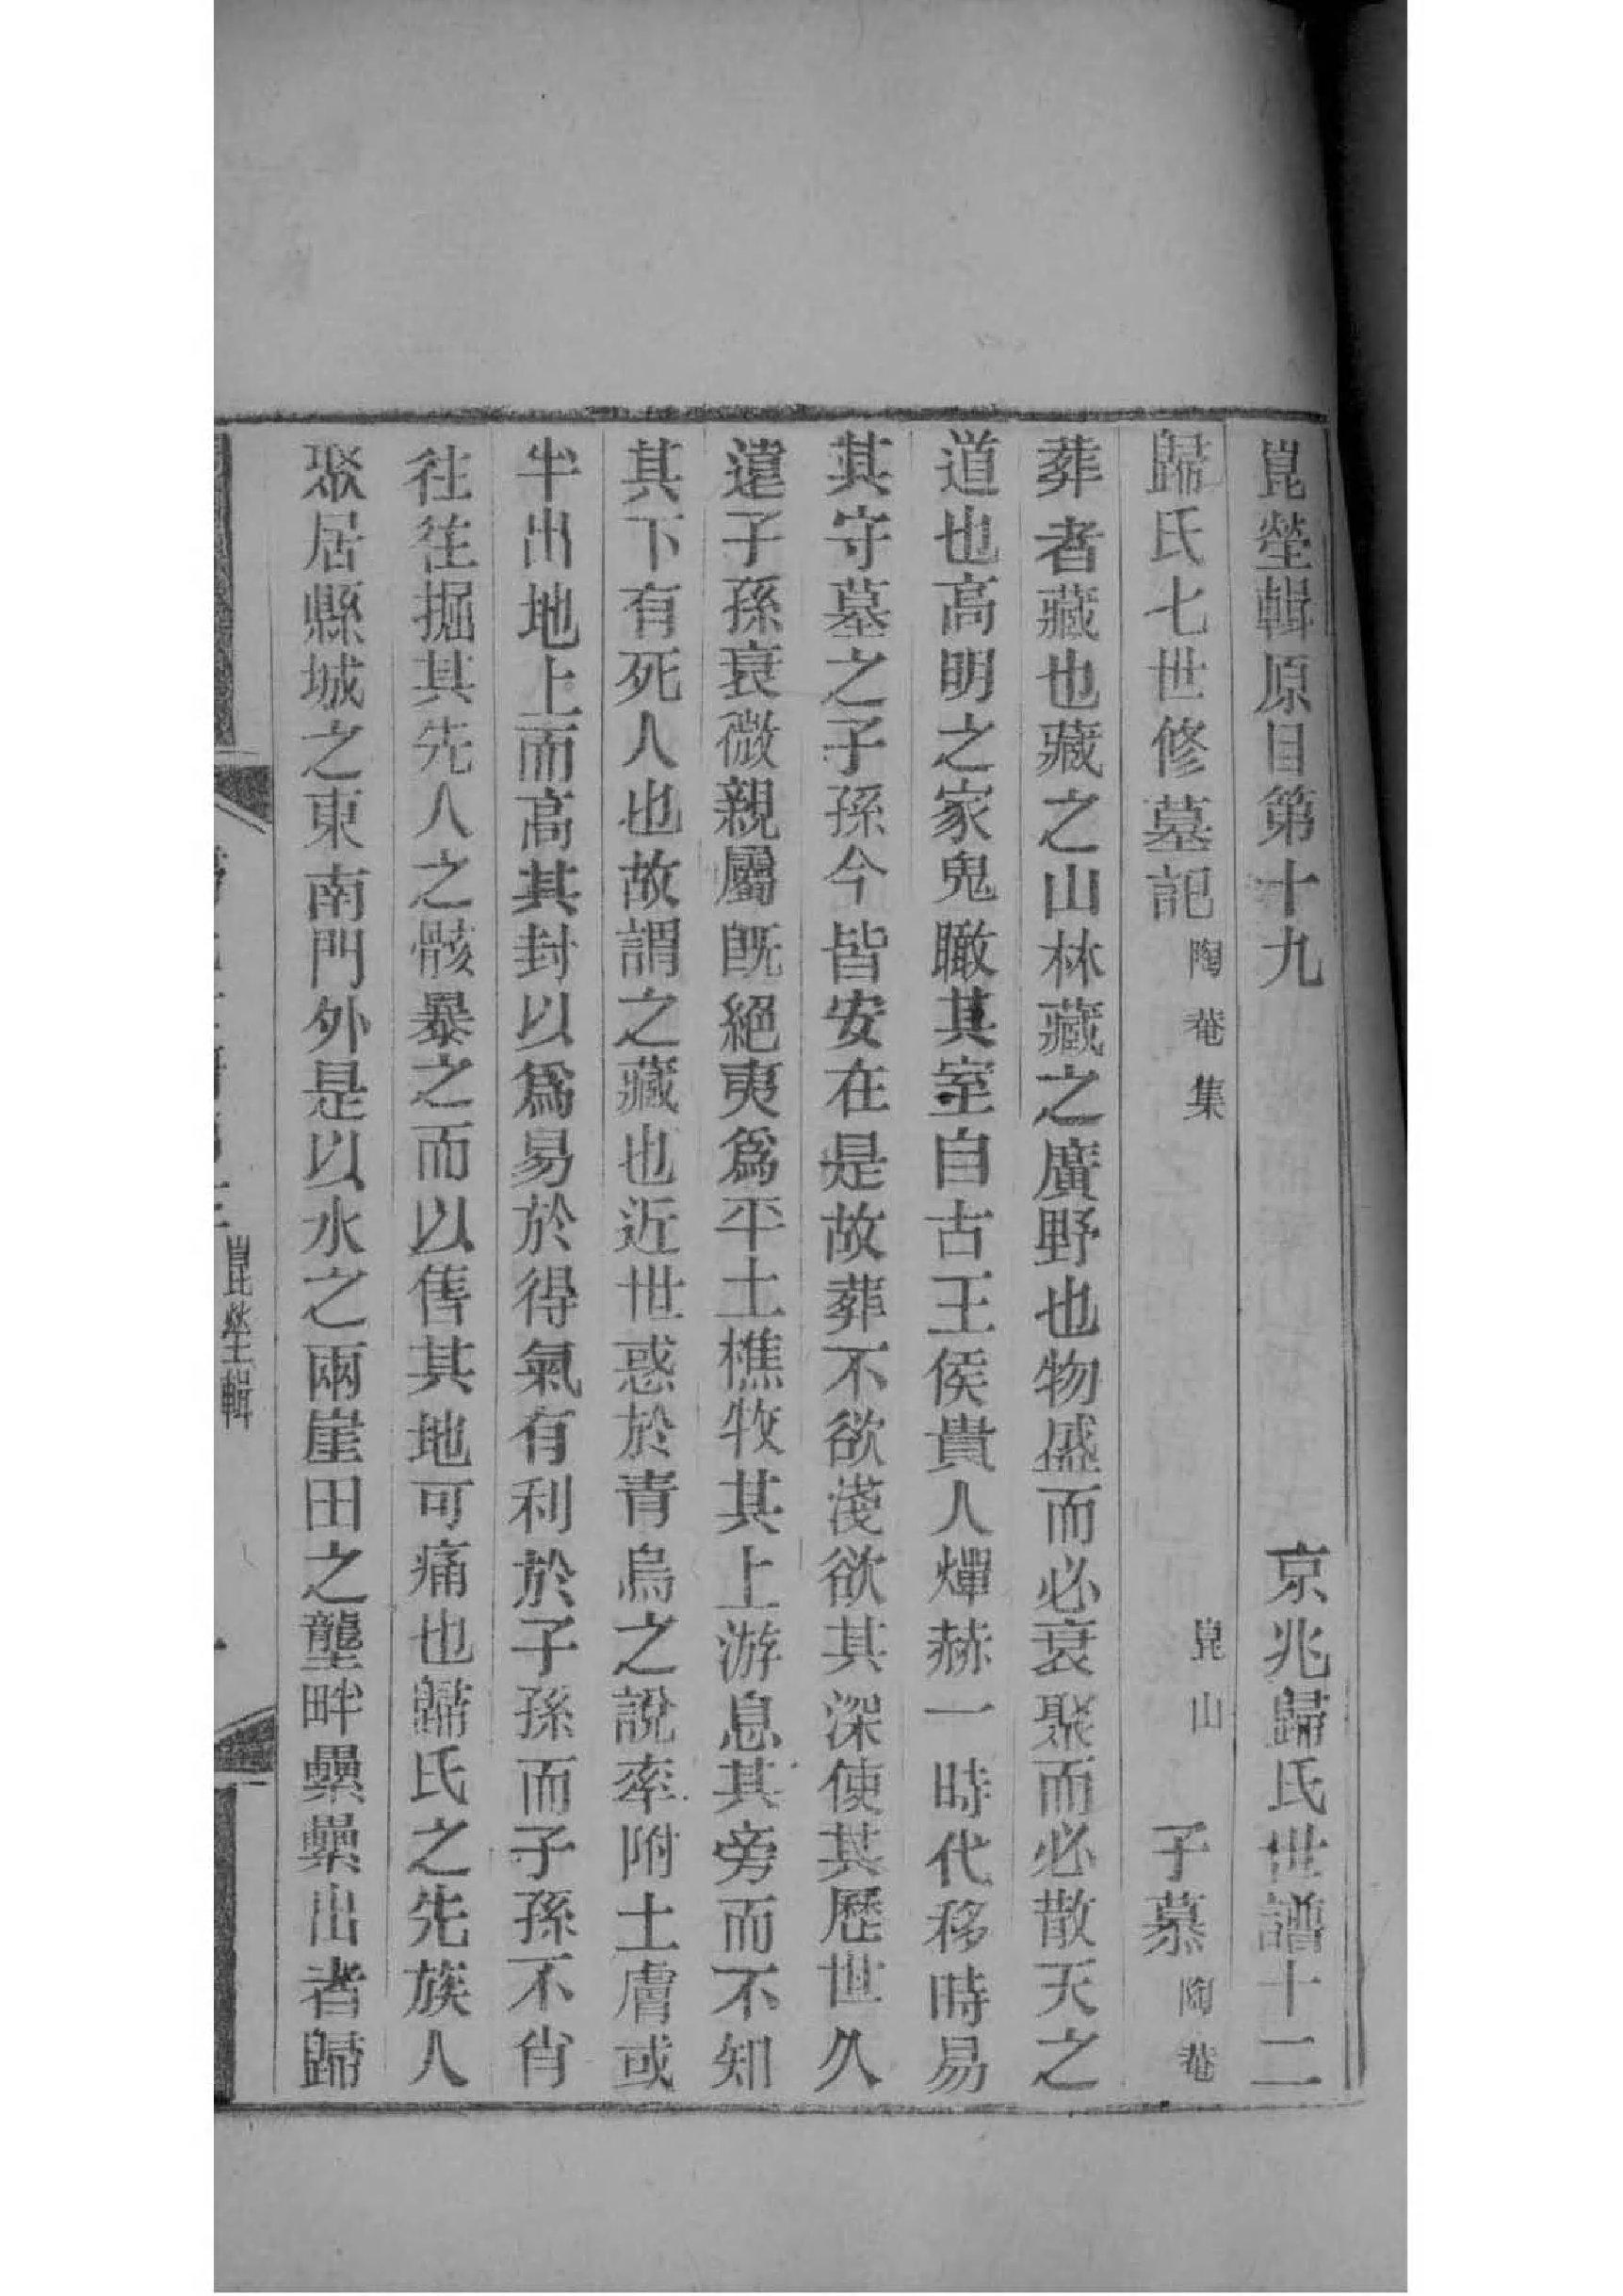 崑塋輯原目第十九　京兆歸氏世譜十二
歸氏七世修墓記 陶菴集　崑山　子慕 陶菴
葬者藏也藏之山林藏之廣野也物盛而必衰聚而必散天之
道也高明之家鬼瞰其室自古王侯貴人燀赫一時代移時易
其守墓之子孫今皆安在是故葬不欲淺欲其深使其歷世久
遠子孫衰微親屬旣絕夷爲平土樵牧其上游息其旁而不知
其下有死人也故謂之藏也近世惑於青烏之說率附土膚或
半出地上而高其封以爲易於得氣有利於子孫而子孫不肖
往往掘其先人之骸暴之而以售其地可痛也歸氏之先族人
聚居縣城之東南門外是以水之兩崖田之壟畔纍纍出者歸
崑塋輯